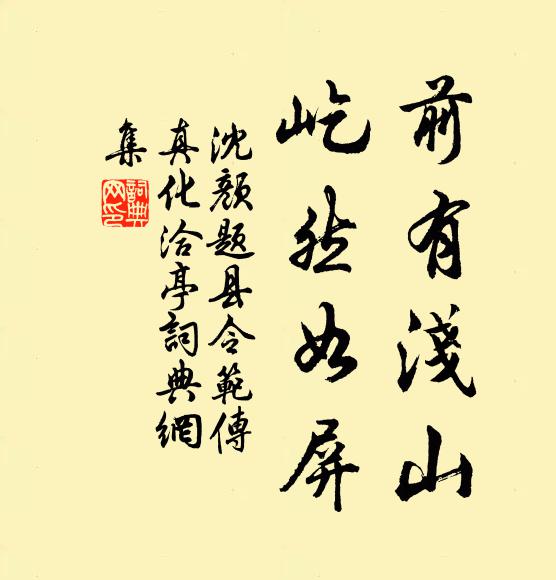 前有淺山
屹然如屏
沈顏題县令範傳
真化洽亭詞典網
集
詞典
网印